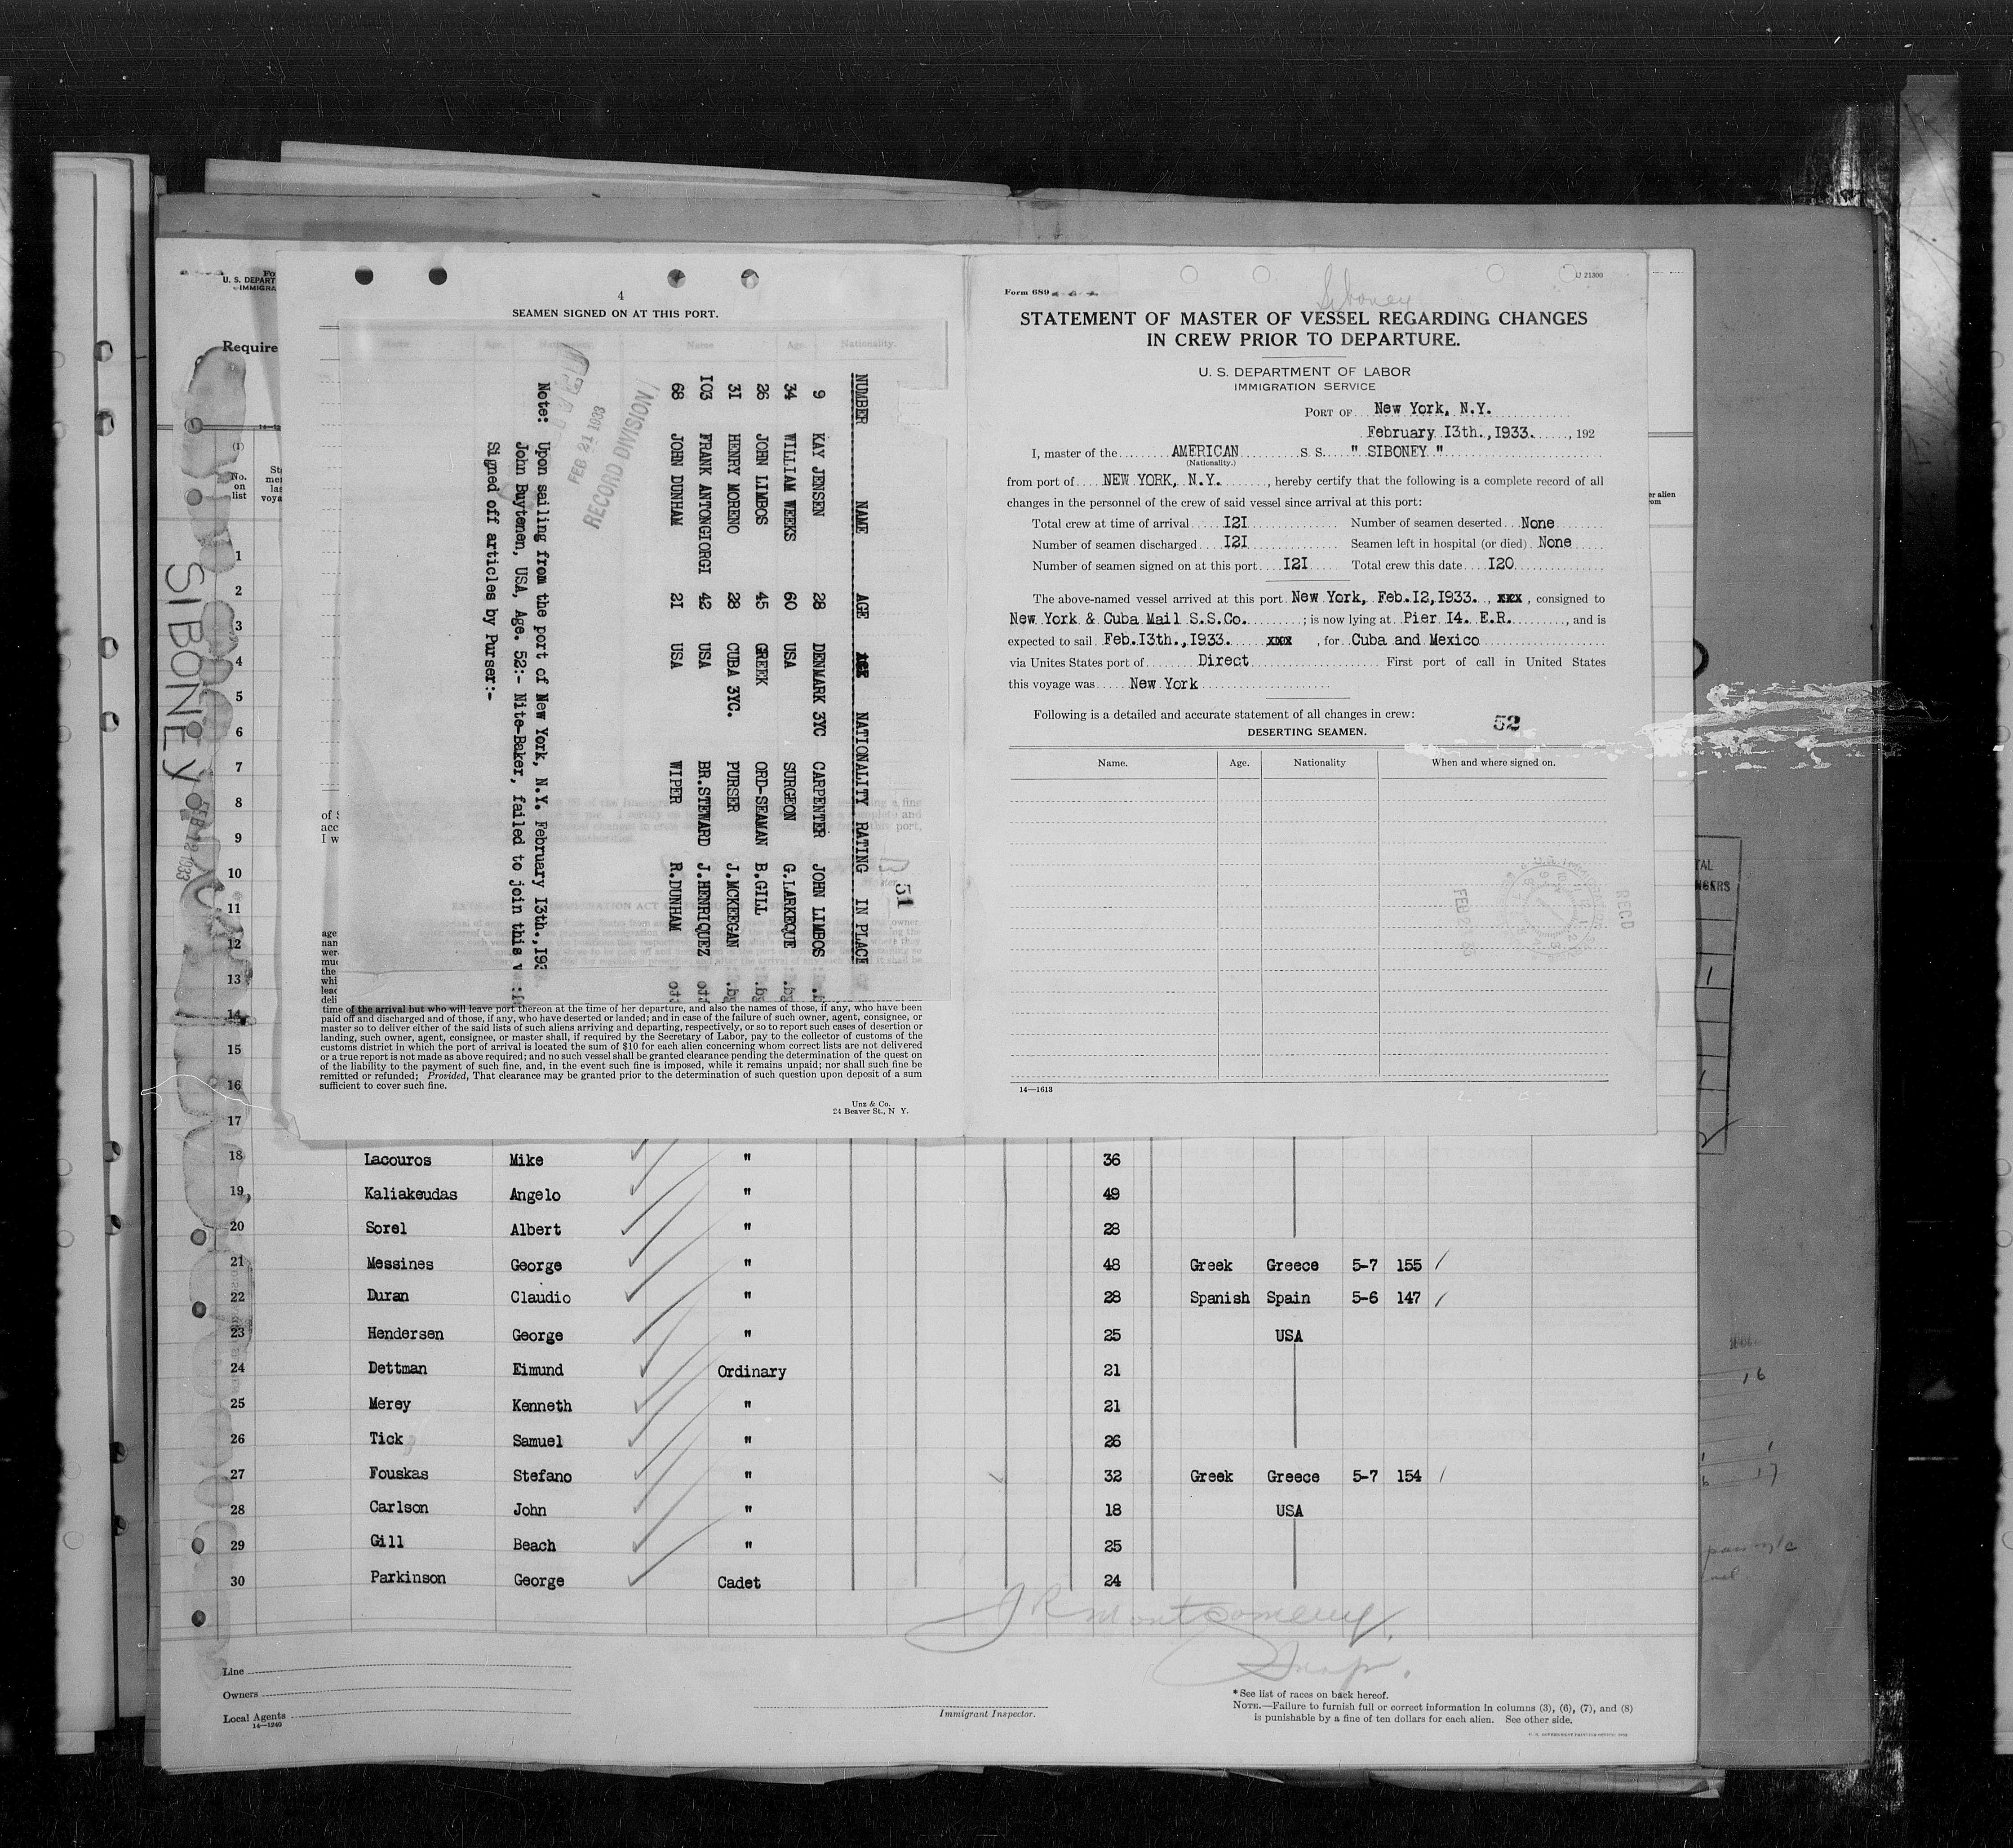 U. S. DEPART
IMMIGRA
Require
(1)
No.
on
list
4
SEAMEN SIGNED ON AT THIS PORT.
NUMBER NAME AGE NATIONALITY RATING IN PLACE
9 KAY JENSEN 28 DENMARK 3YC CARPENTER JOHN LIMBOS
34 WILLIAM WEEKS 60 USA SURGEON G.LARKEQUE
26 JOHN LIMBOS 45 GREEK ORD-SEAMAN B.GILL
3I HENRY MORENO 28 CUBA 3YC. PURSER J.MCKEEGAN
IO3 FRANK ANTONGIORGI 42 USA BR.STEWARD J.HENRIQUEZ
68 JOHN DUNHAM 2I USA WIPER R.DUNHAM
Note: Upon sailing from the port of New York, N.Y. February I3th.,193
John Buytenen, USA, Age. 52:- Nite-Baker, failed to join this v
Signed off articles by Purser:-
FEB 21 1933
RECORD DIVISION
51
time of the arrival but who will leave port thereon at the time of her departure, and also the names of those, if any, who have been
paid off and discharged and of those, if any, who have deserted or landed; and in case of the failure of such owner, agent, consignee, or
master so to deliver either of the said lists of such aliens arriving and departing, respectively, or so to report such cases of desertion or
landing, such owner, agent, consignee, or master shall, if required by the Secretary of Labor, pay to the collector of customs of the
customs district in which the port of arrival is located the sum of $10 for each alien concerning whom correct lists are not delivered
or a true report is not made as above required; and no such vessel shall be granted clearance pending the determination of the quest on
of the liability to the payment of such fine, and, in the event such fine is imposed, while it remains unpaid; nor shall such fine be
remitted or refunded; Provided, That clearance may be granted prior to the determination of such question upon deposit of a sum
sufficient to cover such fine.
Unz & Co.
24 Beaver St., N Y.
Form 689
Siboney
U 21300
STATEMENT OF MASTER OF VESSEL REGARDING CHANGES
IN CREW PRIOR TO DEPARTURE.
U. S. DEPARTMENT OF LABOR
IMMIGRATION SERVICE
PORT OF New York, N.Y.
February I3th.,I933. , 192
I, master of the AMERICAN S. S. " SIBONEY "
(Nationality.)
from port of NEW YORK, N.Y. , hereby certify that the following is a complete record of all
changes in the personnel of the crew of said vessel since arrival at this port:
Total crew at time of arrival I2I Number of seamen deserted None
Number of seamen discharged I2I Seamen left in hospital (or died) None
Number of seamen signed on at this port I2I Total crew this date I20
The above-named vessel arrived at this port New York, Feb.I2,I933. , xxx , consigned to
New York & Cuba Mail S.S.Co. ; is now lying at Pier I4. E.R. , and is
expected to sail Feb.I3th.,I933. xxx , for Cuba and Mexico
via Unites States port of Direct First port of call in United States
this voyage was New York
Following is a detailed and accurate statement of all changes in crew:
52
DESERTING SEAMEN.
Name. Age. Nationality When and where signed on.
14—1613
RECD
SIBONEY
FEB 12 1933
1
2
3
4
5
6
7
8
9
10
11
12
13
14
15
16
17
18 Lacouros Mike " 36
19 Kaliakeudas Angelo " 49
20 Sorel Albert " 28
21 Messines George " 48 Greek Greece 5-7 155
22 Duran Claudio " 28 Spanish Spain 5-6 147
23 Hendersen George " 25 USA
24 Dettman Eimund Ordinary 21
25 Merey Kenneth " 21
26 Tick Samuel " 26
27 Fouskas Stefano " 32 Greek Greece 5-7 154
28 Carlson John " 18 USA
29 Gill Beach " 25
30 Parkinson George Cadet 24
J R Montgomery
Line
Owners
Local Agents
14—1240
Immigrant Inspector.
* See list of races on back hereof.
NOTE.—Failure to furnish full or correct information in columns (3), (6), (7), and (8)
is punishable by a fine of ten dollars for each alien. See other side.